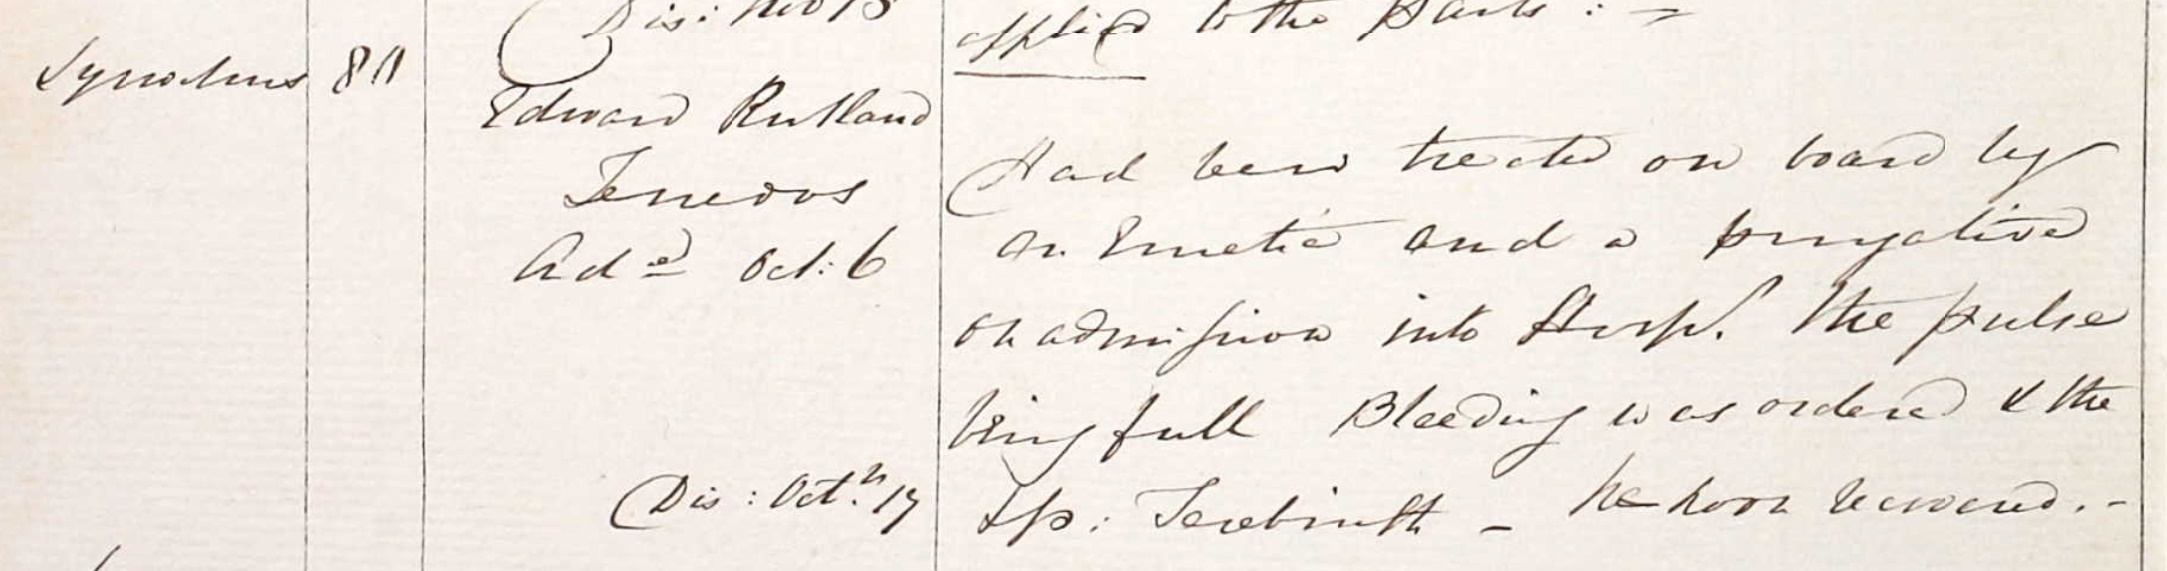 Dis: Nov 15
applied to the Parts : =
Synochus
Edward Rutland
Tenedos
Ad^d Oct: 6
Dis : Oct^r. 17
Had been treated on board by
an Emetic and a purgative
on admission into Hosp^l. The pulse
being full Bleeding was ordered & the
Sp: Terebinth - he soon recovered. -